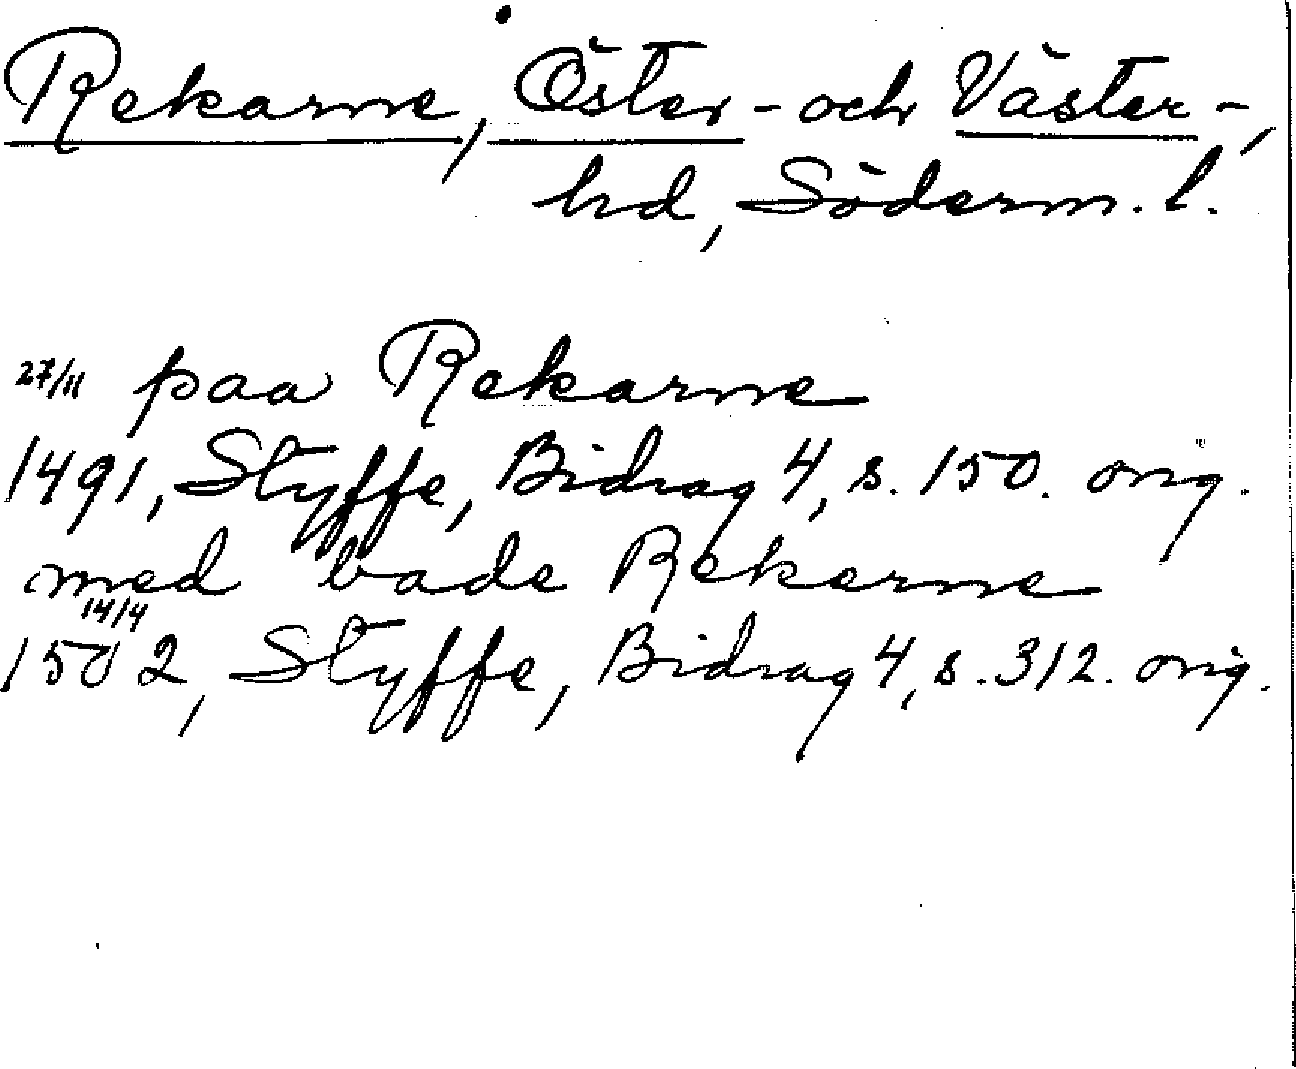 Rekarne, Öster- och Väster-,
hd, Söderm. l.
27/11 paa Rekarne
1491, Styffe, Bidrag 4, s. 150. orig.
med bade Rekerne
14/4
1502, Styffe, Bidrag 4, s. 312. orig.